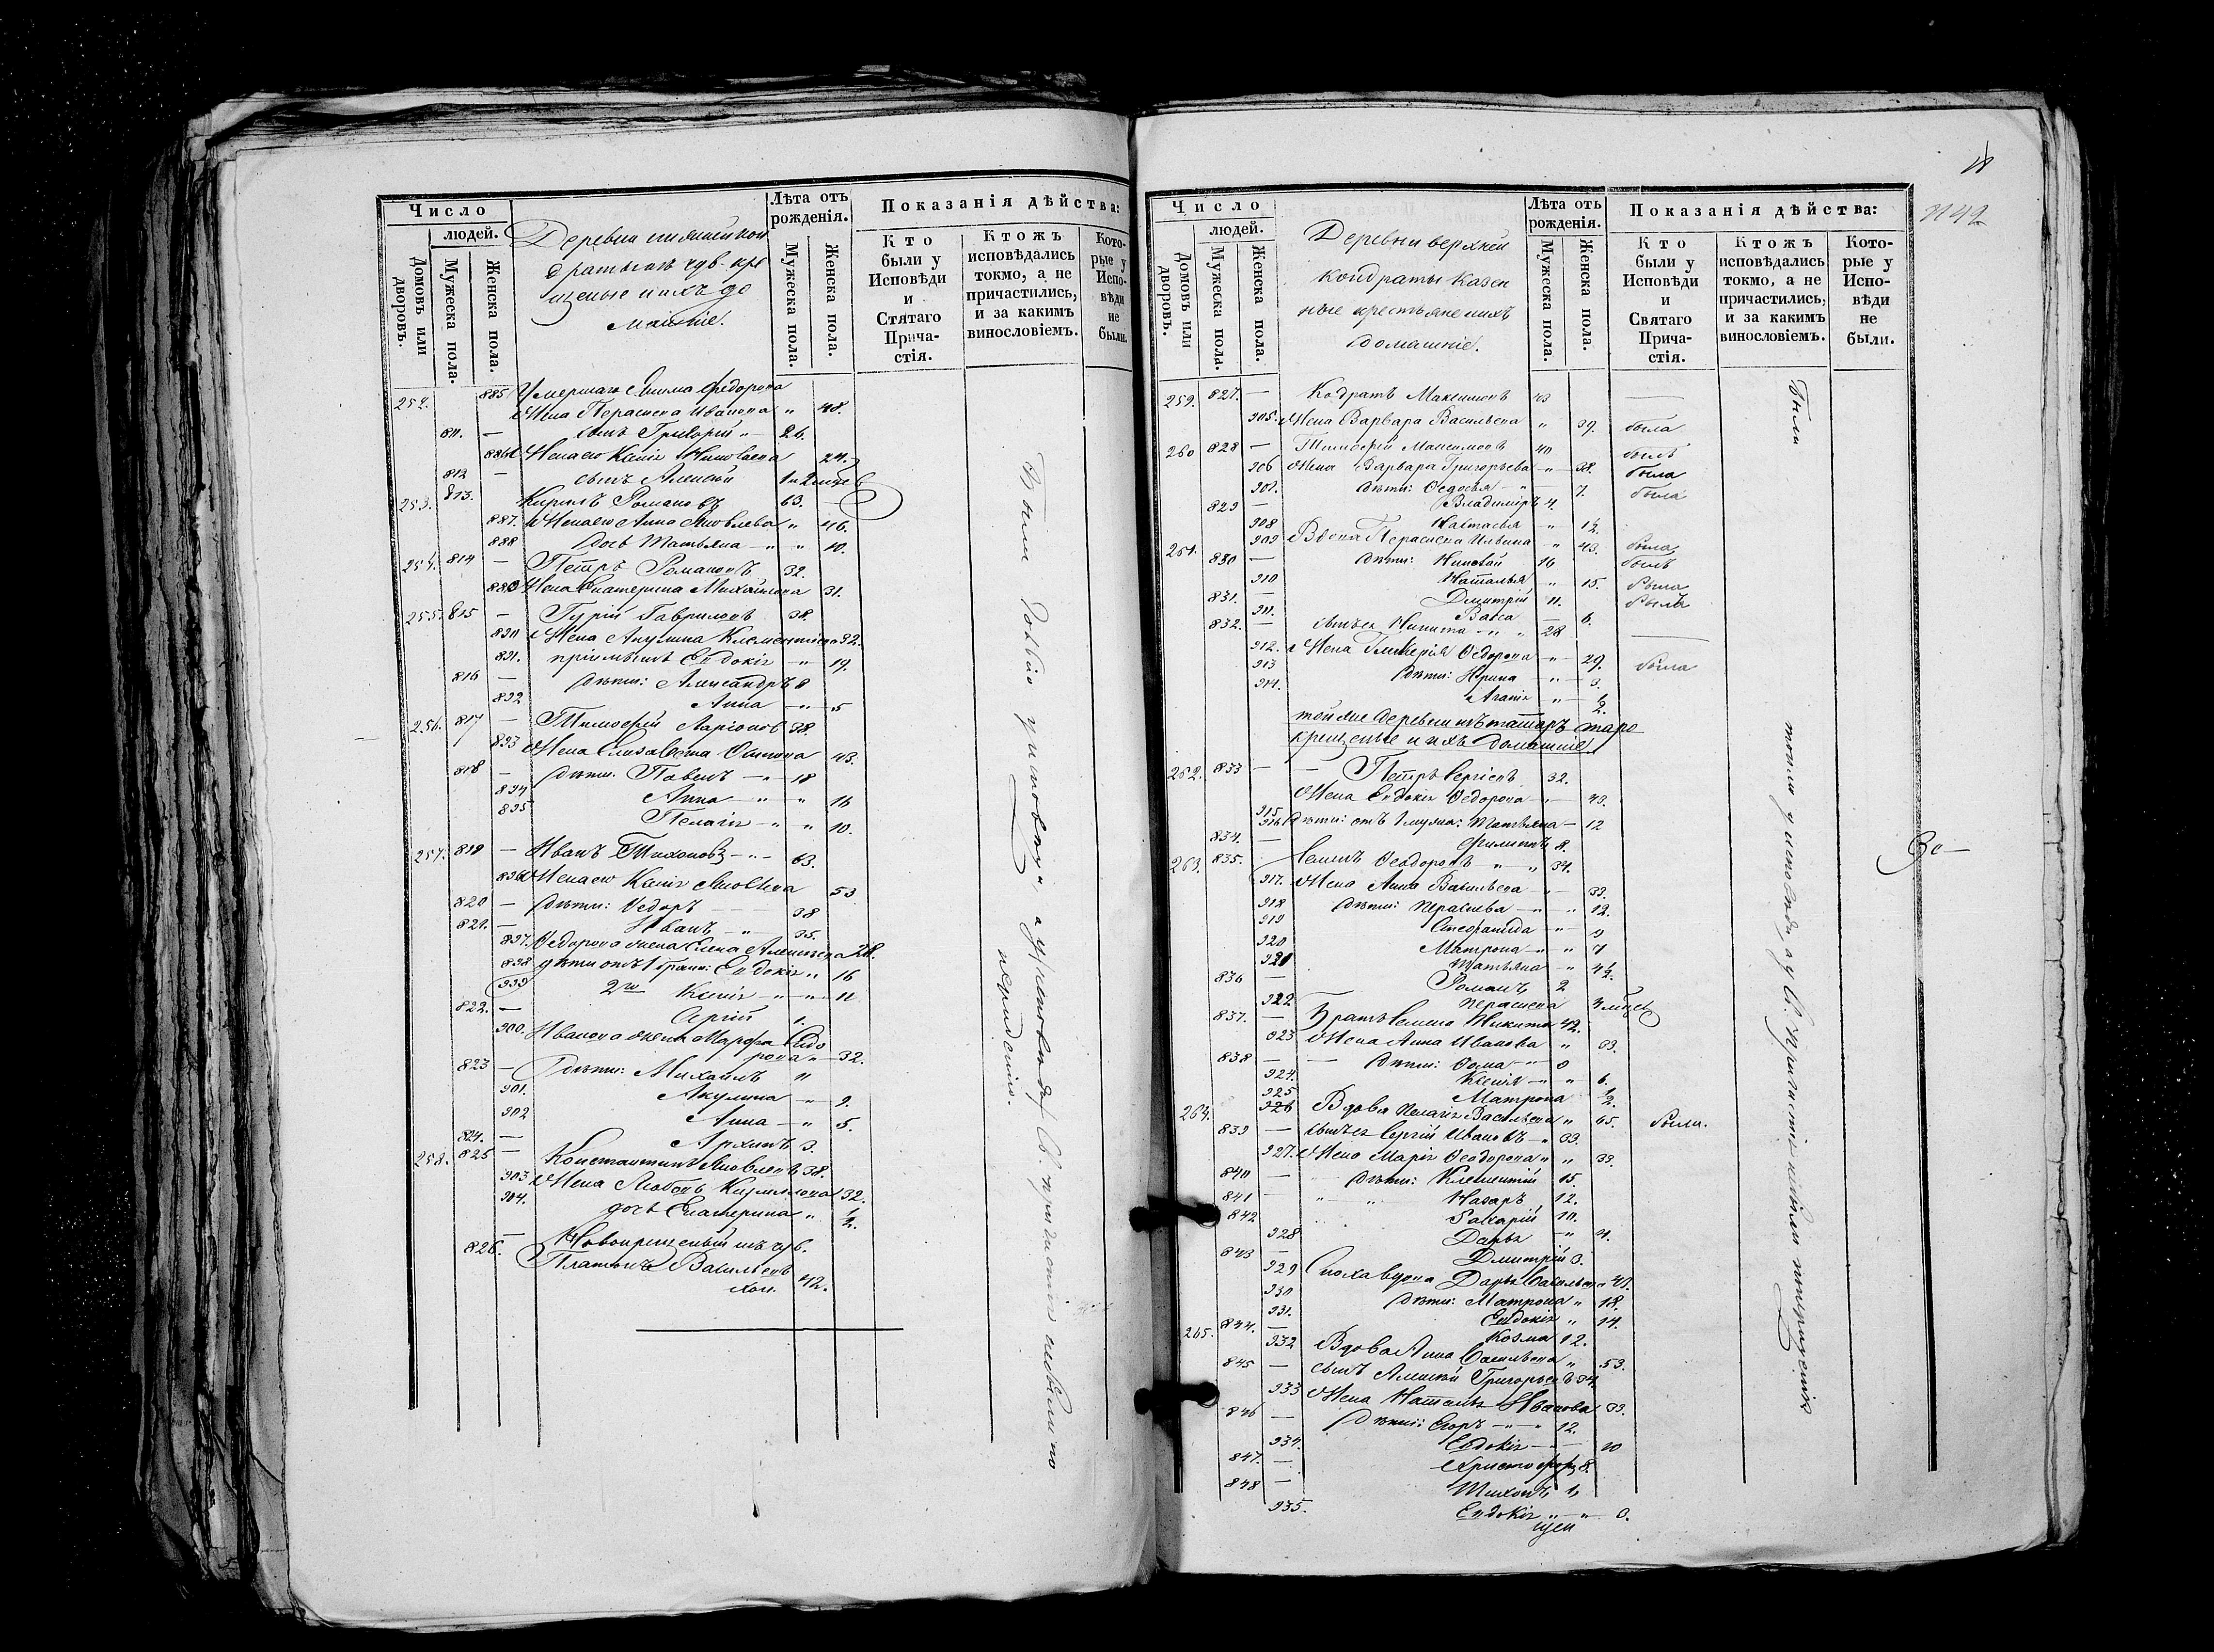 Число
людей.
Домовъ или дворовъ.
Мужеска пола.
Женска пола.
Деревни нижней кон
дратычъ чув. кре
щеные и ихъ до
машніе.
Лѣта отъ рожденія.
Мужеска пола.
Женска пола.
Показанія дѣйства:
Кто были у Исповѣди и Стятаго Прича-стія.
Ктожъ исповѣдались токмо, а не причастились, и за какимъ винословіемъ.
Кото-рые у Испо-вѣди не были.
885 Умершаго Якима Федорова
252. Жена Параскева Иванова " 48.
811. — сынъ Григорій " 26.
886 Жена его Ксенія Николаева 24.
812 — сынъ Алексѣй
253. 813. Кирилъ Романовъ 63. —
887. Жена его Анна Яковлева " 46.
888 дочь Татьяна — " " 10.
254. 814 — Петръ Романовъ 32.
889 Жена Екатерина Михайлова 31.
255. 815 — Гурій Гавриловъ 38.
890 Жена Акулина Клементіева 32.
891. пріемышъ Евдокія — " 19.
816 — дѣти: Александръ 8
892 Анна — " 5
256. 817 — Тимофей Ларіоновъ 38.
893 Жена Елизавета Осипова 43.
818 — дѣти: Павелъ — " — 18
894 Анна — " " 16
895 Пелагія — " " 10.
257. 819 — Иванъ Тихоновъ — " — 63.
896 Жена его Ксенія Яковлева 53
820 — дѣти: Ѳедоръ — 38
821. — Иванъ — " — 35.
897. Ѳедорова жена Елена Алексѣева 38.
898 дѣти отъ 1 брака: Евдокія " 16
899 2го Ксенія — " — " — 11
822. — Сергій 1.
900. Иванова жена Марфа Ѳедо
рова " — 32.
823 — дѣти: Михаилъ 11
901. Акулина — " 9.
902 Анна — " 5.
824. — Архипъ 3.
258. 825 — Константинъ Яковлевъ 38.
903 Жена Любовь Кириллова 32.
904. дочь Екатерина " 1/2.
Новокрещеный изъ чув.
826. — Платонъ Васильевъ
хол. 42.
Были
у исповѣди, а у Св. Причастія небыли по
нерадѣнію.
Число
людей.
Домовъ или дворовъ.
Мужеска пола.
Женска пола.
Деревни верхней
кондраты казен
ные крестьяне и ихъ
домашніе.
Лѣта отъ рожденія.
Мужеска пола.
Женска пола.
Показанія дѣйства:
Кто были у Исповѣди и Святаго Прича-стія.
Ктожъ исповѣдались токмо, а не причастились, и за какимъ винословіемъ.
Кото-рые у Испо-вѣди не были.
259. 827. — Кодратъ Максимовъ 43 —
905. Жена Варвара Васильева " 39. была
260 828 — Тимофей Максимовъ 40 былъ
906 Жена Варвара Григорьева — " — 38. была
907. дѣти: Ѳедосья — " — 7. была
829 — Владиміръ 4.
908 Настасья — " 1 1/2
261. 909 Вдова Параскева Ильина — " 43. была
830 — дѣти: Николай 16 былъ
910 Наталья " 15. была
831. — Дмитрій 11. былъ
911. Васса — 6.
832. — сынъ ея Никита — " " 28 —
912. Жена Гликерія Ѳедорова — " — 29. была
913 дѣти: Ирина — " — 3.
914. Агапія " — 1/2.
той же деревни изъ татаръ старо
крещеные и ихъ домашніе
262. 833 — — Петръ Сергіевъ 32.
Жена Евдокія Ѳедорова — " — 43.
915.
916. дѣти: отъ 1 мужа: Татьяна — 12
834. — Филиппъ 8.
263. 835. Семенъ Ѳеодоровъ " " 34.
917. Жена Анна Васильева — " — 33.
918 дѣти: Параскева — " — " 12.
919 Стефанида — " — 9
920 Матрона — " — " 7
921 Татьяна — " 4 1/2.
836 — Романъ 2
922. Параскева 3 мѣсец
837. — Братъ Семена Никита 42.
923 Жена Анна Иванова " 33.
838 — — дѣти: Ѳома — " — 8
924. Ксенія — " — " 6.
925 Матрона 1/2.
264. 926 Вдова Пелагія Васильева " 65. были.
839 — сынъ ея Сергій Ивановъ — " 39.
927. Жена Марія Ѳеодорова " " 39.
840 — дѣти: Клементій 15.
841 — " " Назаръ 12.
842 Захарій 10.
928 Дарья — " 4.
843 — Дмитрій 3.
929 Сноха вдова Дарья Васильева 41.
930 дѣти: Матрона " 18.
931. Евдокія " 14.
844. — Козма 12.
265. 932 Вдова Анна Васильева " 53.
845 — сынъ Алексѣй Григорьевъ 34.
933 Жена Наталья Иванова 33.
846 — дѣти: Егоръ — " — " 12.
934. Евдокія — " — 10
847. — Христофоръ 8.
848 — Тихонъ 1
935. Евдокія " — " 0.
Были
у исповѣди, а у Св. Причастія небыли по нерадѣнію